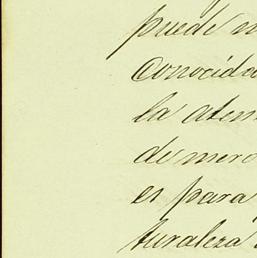 puede
conocida
la aten
de mero
es para
turaleza